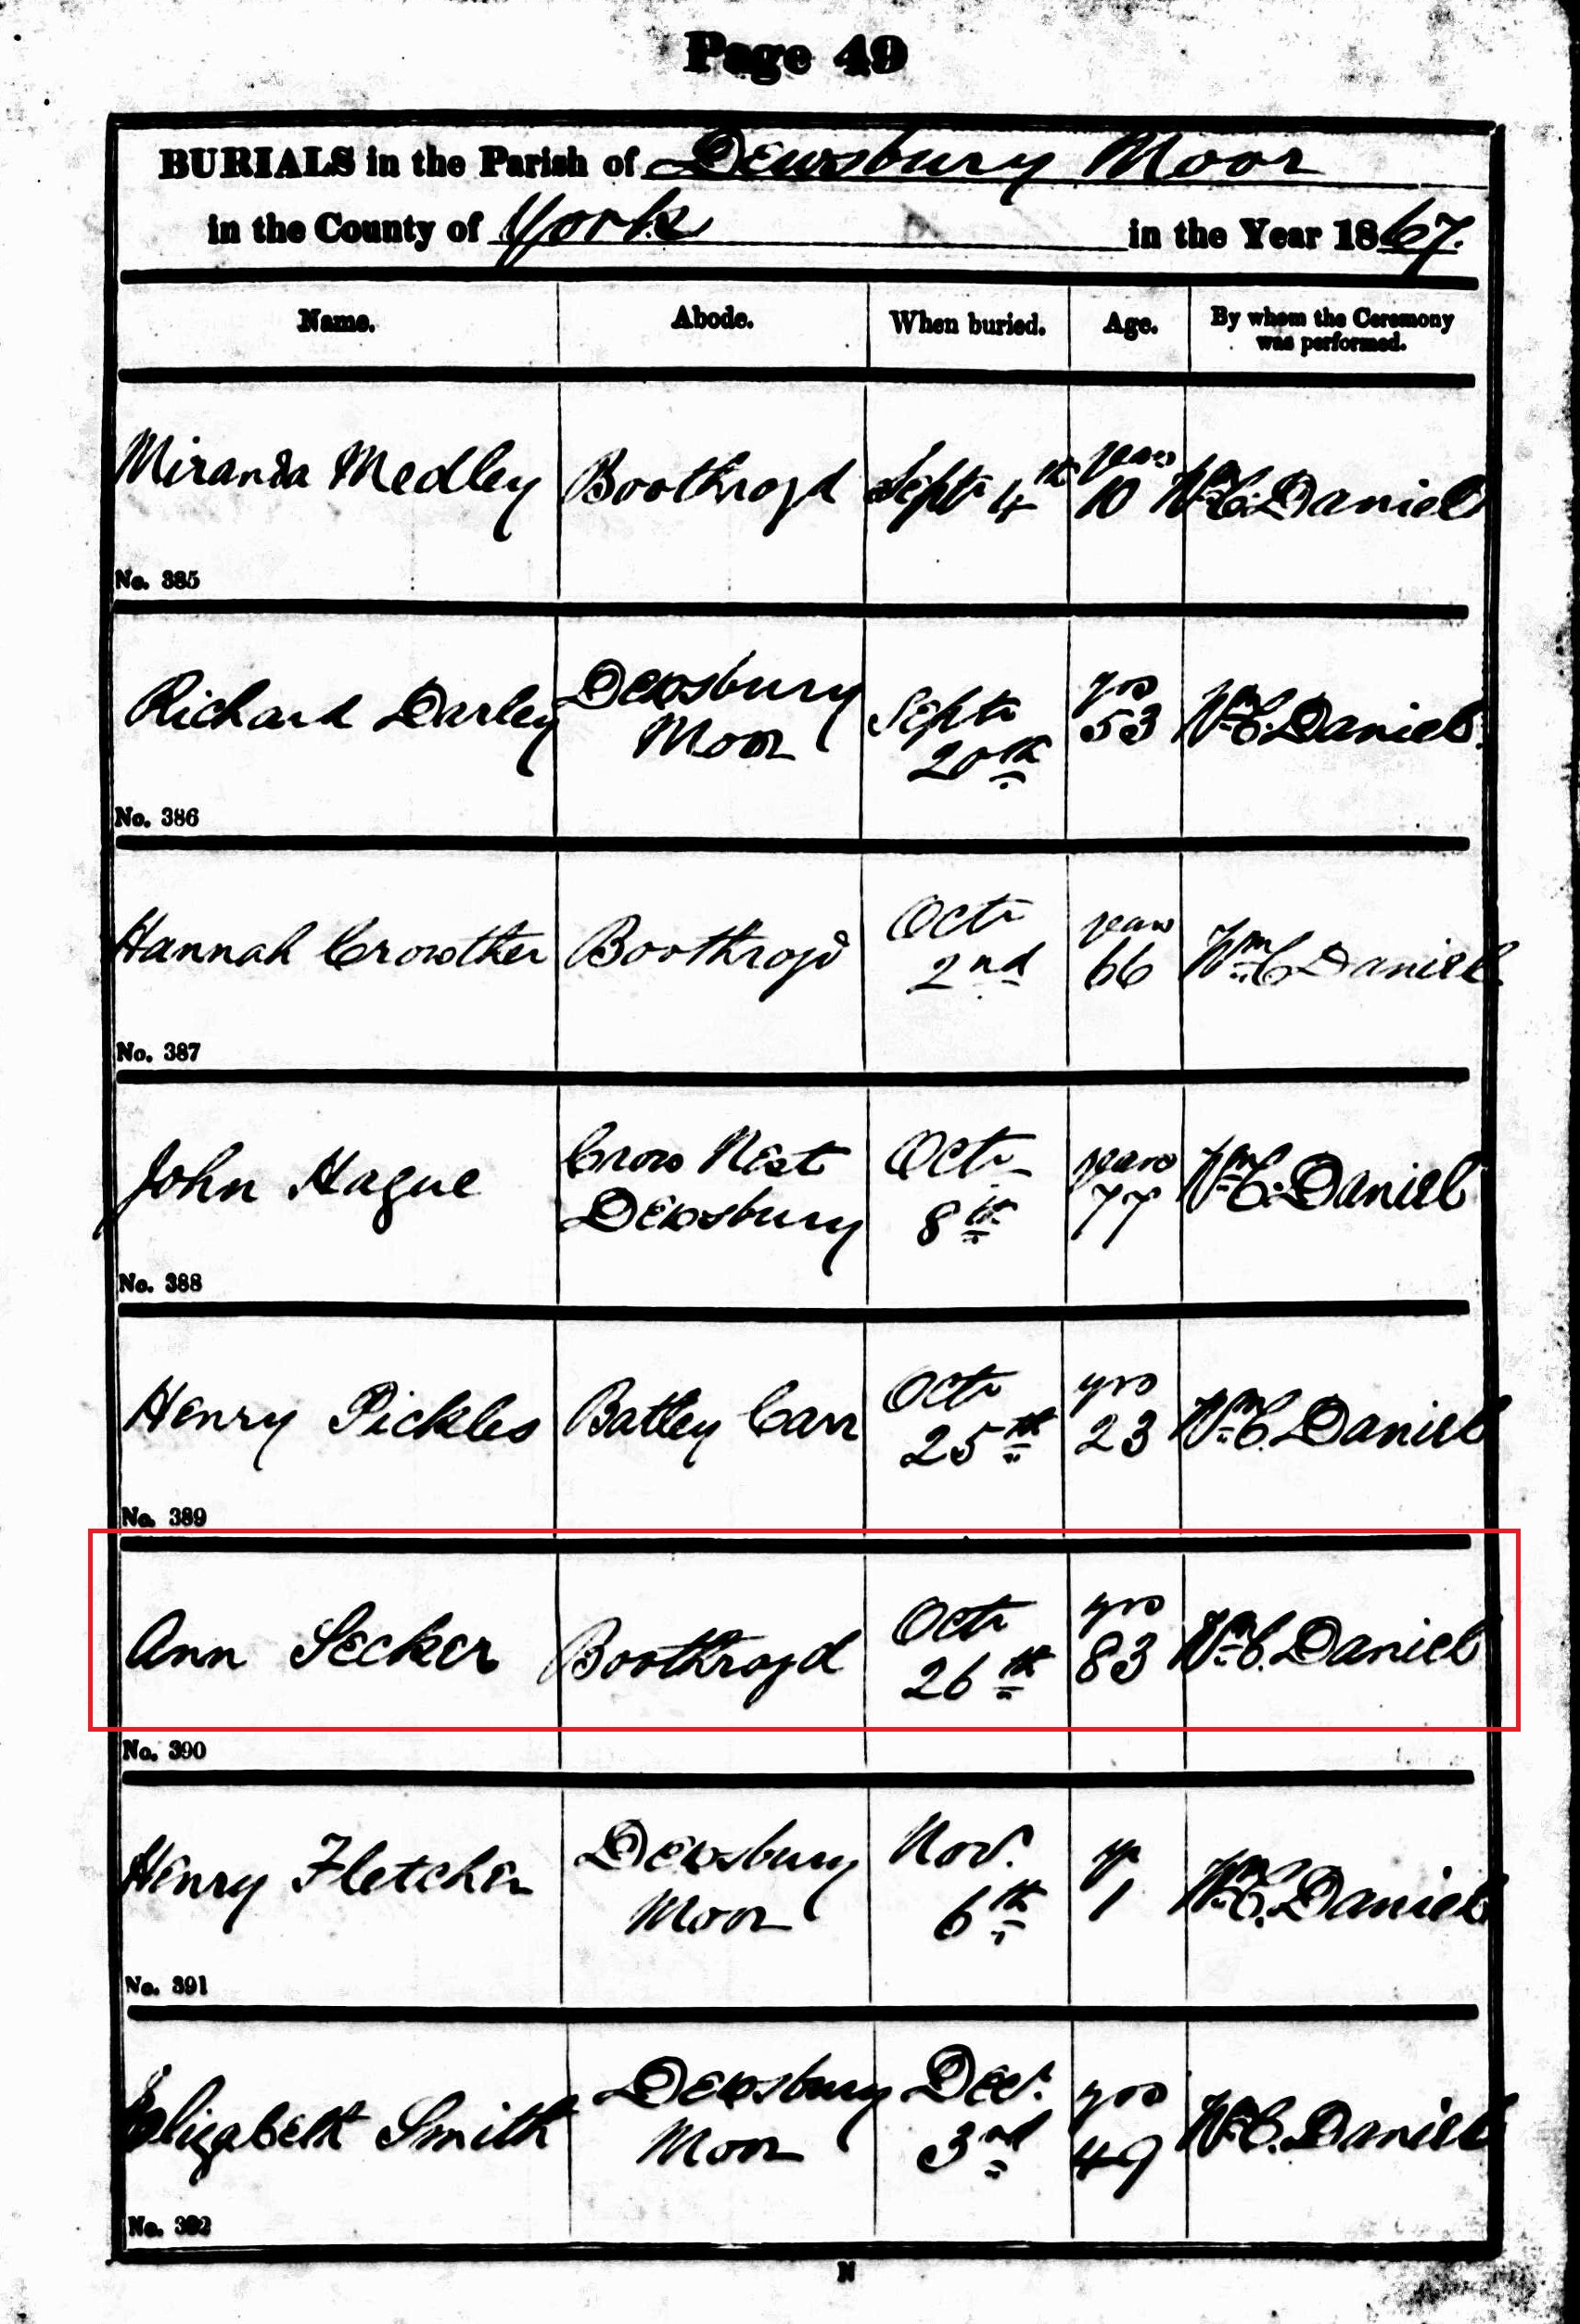 Page 49
BURIALS in the Parish of Dewsbury Moor
in the County of York in the Year 1867.
Name. Abode. When buried. Age. By whom the Ceremony
was performed.
Miranda Medley Boothroyd Septr 4th years 10 Wm C. Daniel
No. 385
Richard Darley Dewsbury Moor Septr 20th yrs 53 Wm C. Daniel
No. 386
Hannah Crowther Boothroyd Octr 2nd years 66 Wm C Daniel
No. 387
John Hague Crow Nest Dewsbury Octr 8th years 77 Wm C. Daniel
No. 388
Henry Pickles Batley Carr Octr 25th yrs 23 Wm C. Daniel
No. 389
Ann Secker Boothroyd Octr 26th yrs 83 Wm C. Daniel
No. 390
Henry Fletcher Dewsbury Moor Nov. 6th yr 1 Wm C. Daniel
No. 391
Elizabeth Smith Dewsbury Moor Decr 3rd yrs 49 Wm C. Daniel
No. 392
N